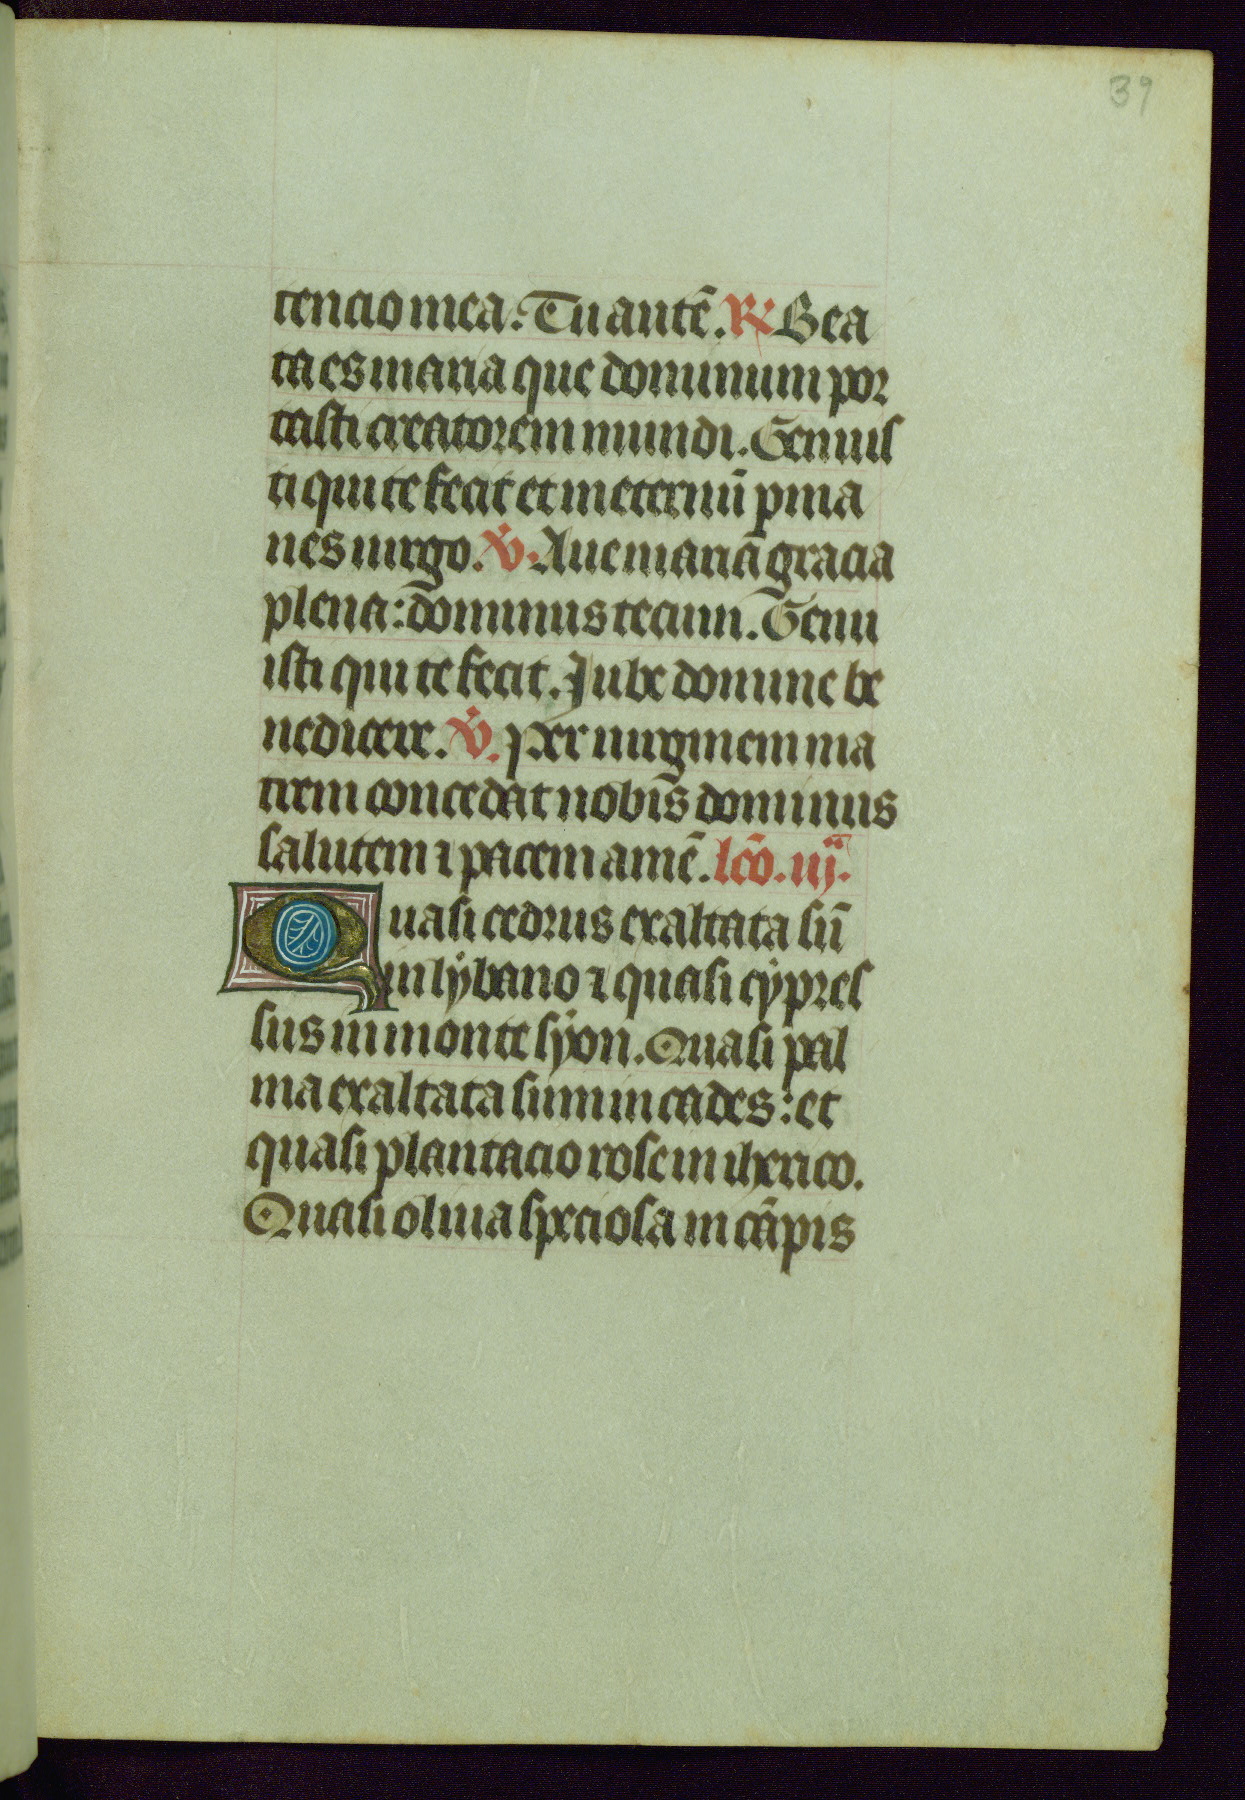 39
tencio mea. Tu autē. ℟ Bea
ta es maria que dominum por
tasti creatorem mundi. Genuis
ti qui te fecit et in eternū pma
nes uirgo. ℣. Aue maria gracia
plena: dominus tecum. Genu
isti qui te fecit. Jube domine be
nedicere. ℣. Per uirginem ma
trem concedat nobis dominus
salutem ⁊ pacem amē. lcō. iij.
Quasi cedrus exaltata sū
in lybano ⁊ quasi cypres
sus in monte syon. Quasi pal
ma exaltata sum in cades: et
quasi plantacio rose in iherico.
Quasi oliua speciosa in cāpis